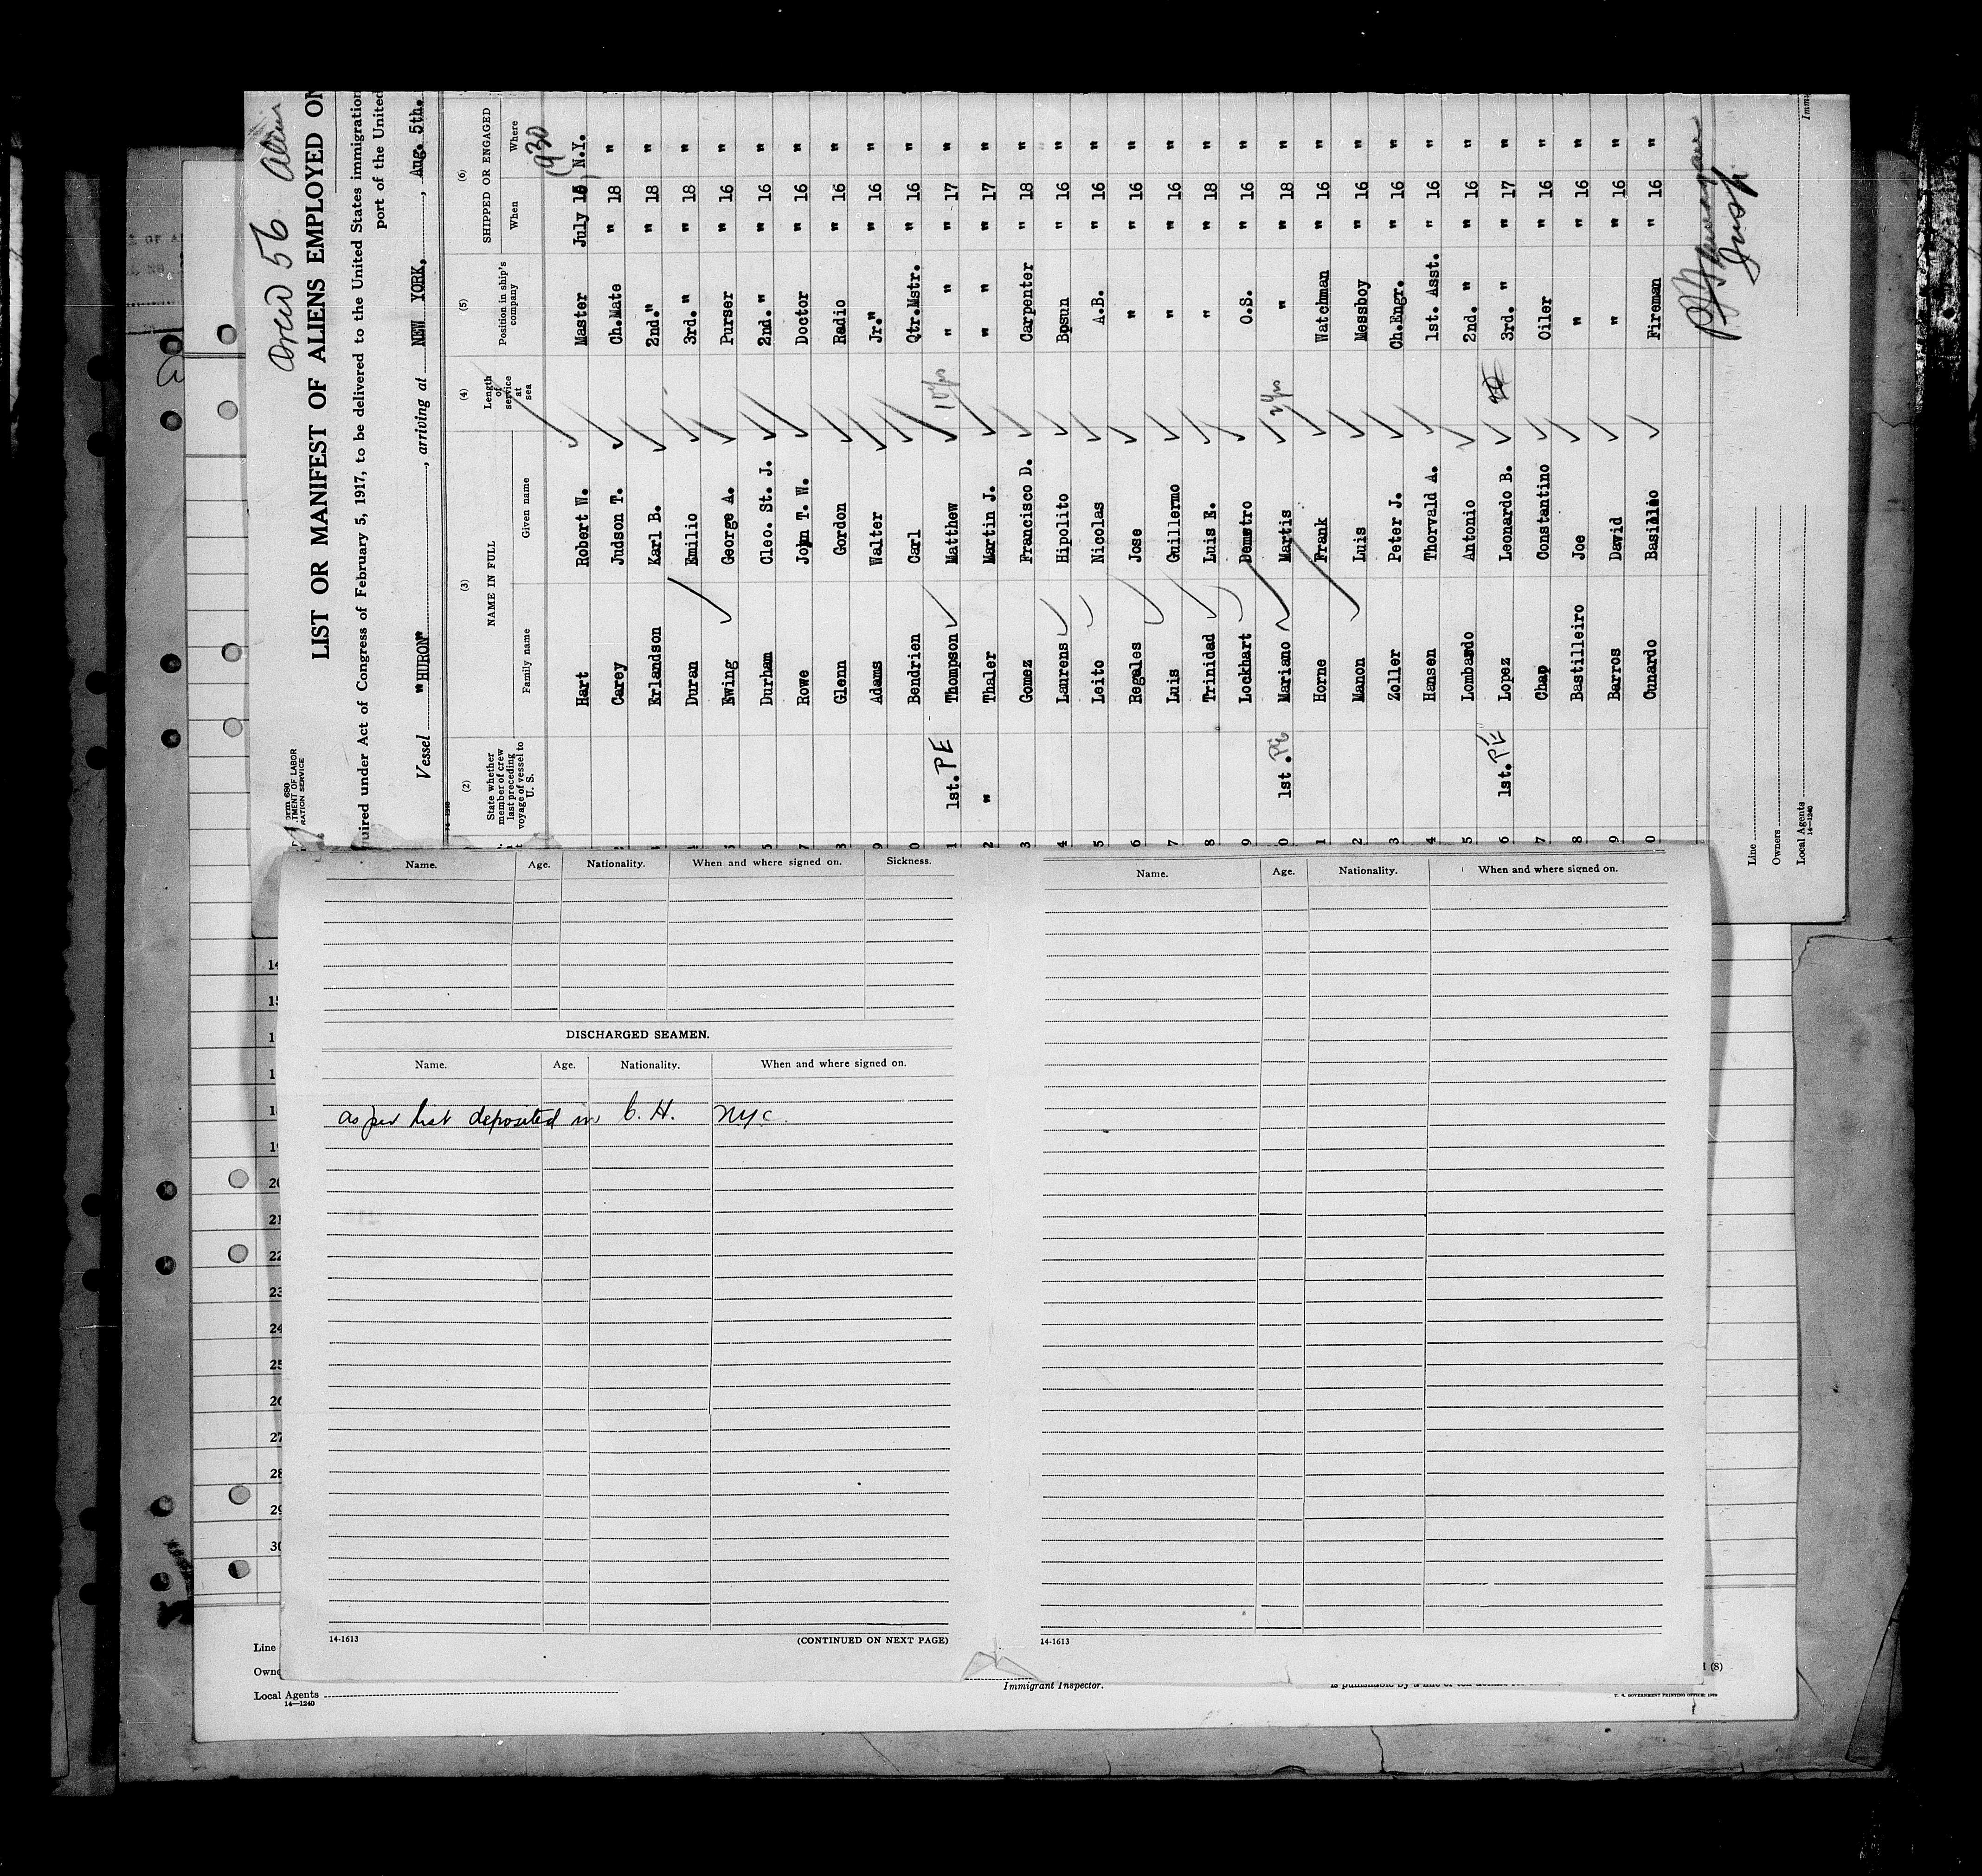 Crew 56
LIST OR MANIFEST OF ALIENS EMPLOYED ON
quired under Act of Congress of February 5, 1917, to be delivered to the United States immigration
port of the United
Vessel "HURON", arriving at NEW YORK, Aug. 5th.
1930
(2) (3) (4) (5) (6)
State whether member of crew last preceding voyage of vessel to U. S. NAME IN FULL Length of service at sea Position in ship's company SHIPPED OR ENGAGED
Family name Given name When Where
Hart Robert W. Master July 16, N.Y.
Carey Judson T. Ch.Mate " 18 "
Erlandson Karl B. 2nd." " 18 "
Duran Emilio 3rd." " 18 "
Ewing George A. Purser " 16 "
5 Durham Cleo. St. J. 2nd." " 16 "
7 Rowe John T. W. Doctor " 16 "
8 Glenn Gordon Radio " 16 "
9 Adams Walter Jr." " 16 "
0 Bendrien Carl Qtr.Mstr. " 16 "
1 1st. PE Thompson Matthew 10 yrs " " " 17 "
2 " Thaler Martin J. " " " 17 "
3 Gomez Francisco D. Carpenter " 18 "
4 Laurens Hipolito Bosun " 16 "
5 Leito Nicolas A.B. " 16 "
6 Regales Jose " " 16 "
7 Luis Guillermo " " 16 "
8 Trinidad Luis E. " " 18 "
9 Lockhart Demetro O.S. " 16 "
0 1st. PE Mariano Martis 2 yrs " " 18 "
1 Horne Frank Watchman " 16 "
2 Manon Luis Messboy " 16 "
3 Zoller Peter J. Ch.Engr. " 16 "
4 Hansen Thorvald A. 1st. Asst. " 16 "
5 Lombardo Antonio 2nd. " " 16 "
6 1st. PE Lopez Leonardo B. 3rd. " " 17 "
7 Chap Constantino Oiler " 16 "
8 Bastilleiro Joe " " 16 "
9 Barros David " " 16 "
0 Cunardo Basilio Fireman " 16 "
Insp.
Line
Owners
Local Agents
14-1240
Name. Age. Nationality. When and where signed on. Sickness.
DISCHARGED SEAMEN.
Name. Age. Nationality. When and where signed on.
as per list deposited in C. H. NYC.
14-1613 (CONTINUED ON NEXT PAGE)
Name. Age. Nationality. When and where signed on.
14-1613
14
15
1
1
18
19
20
21
22
23
24
25
26
27
28
29
30
Line
Owne
Local Agents
14-1240
Immigrant Inspector.
(8)
U. S. GOVERNMENT PRINTING OFFICE: